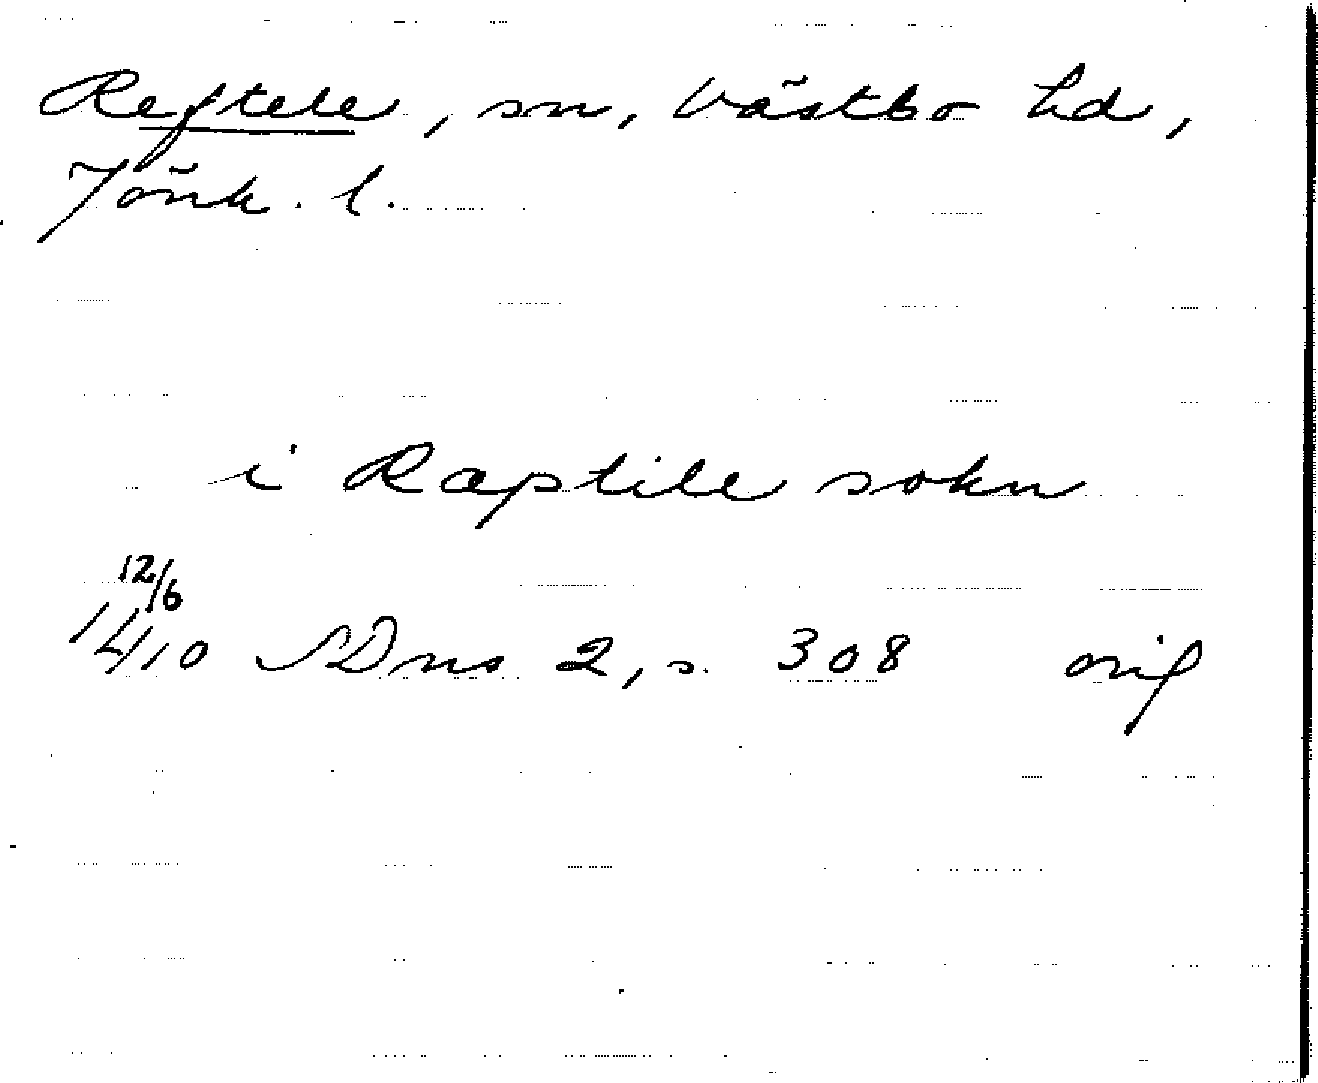 Reftele, sn, Västbo hd,
Jönk. l.
i Ræptile sokn
12/6
1410 SDns 2, s. 308 orig